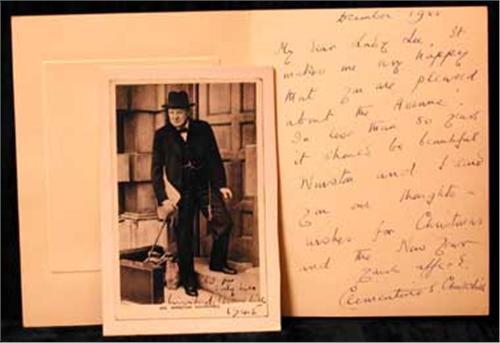 December 19
My dear Lady Lee, It
makes me very happy
that you are pleased
about the Avenue!
In less than 50 years
it should be beautiful
Winston and I send
you our thoughts &
wishes for Christmas
and the New Year
Clementine S. Churchill
MR. WINSTON CHURCHILL